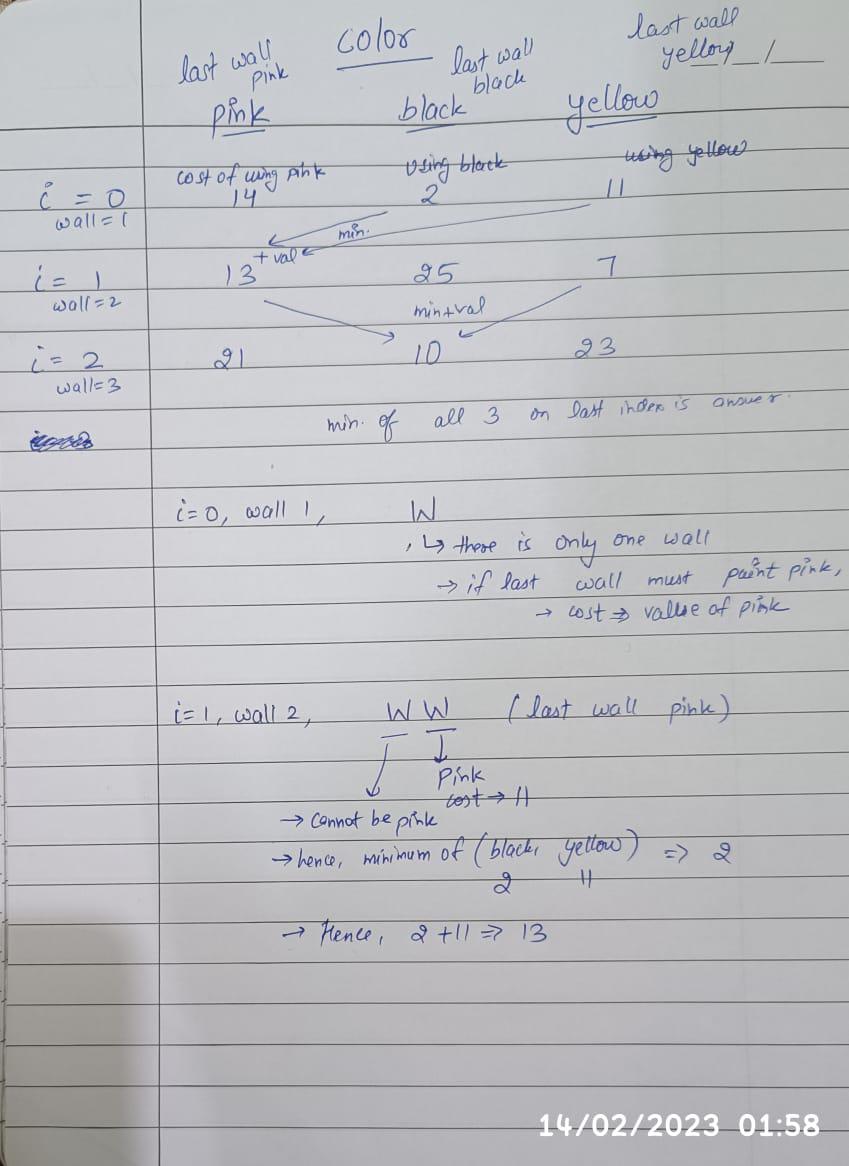 color
last wall pink
last wall black
last wall yellow
pink black yellow
cost of using pink using black using yellow
i = 0 14 2 11
wall = 1
min.
+ val
i = 1 13 25 7
wall = 2
min + val
i = 2 21 10 23
wall = 3
min. of all 3 on last index is answer.
i=0, wall 1, W
↳ there is only one wall
→ if last wall must paint pink,
→ cost ⇒ value of pink
i=1, wall 2, W W (last wall pink)
Pink
cost → 11
→ Cannot be pink
→ hence, minimum of (black, yellow) => 2
2 11
→ Hence, 2 + 11 => 13
14/02/2023 01:58